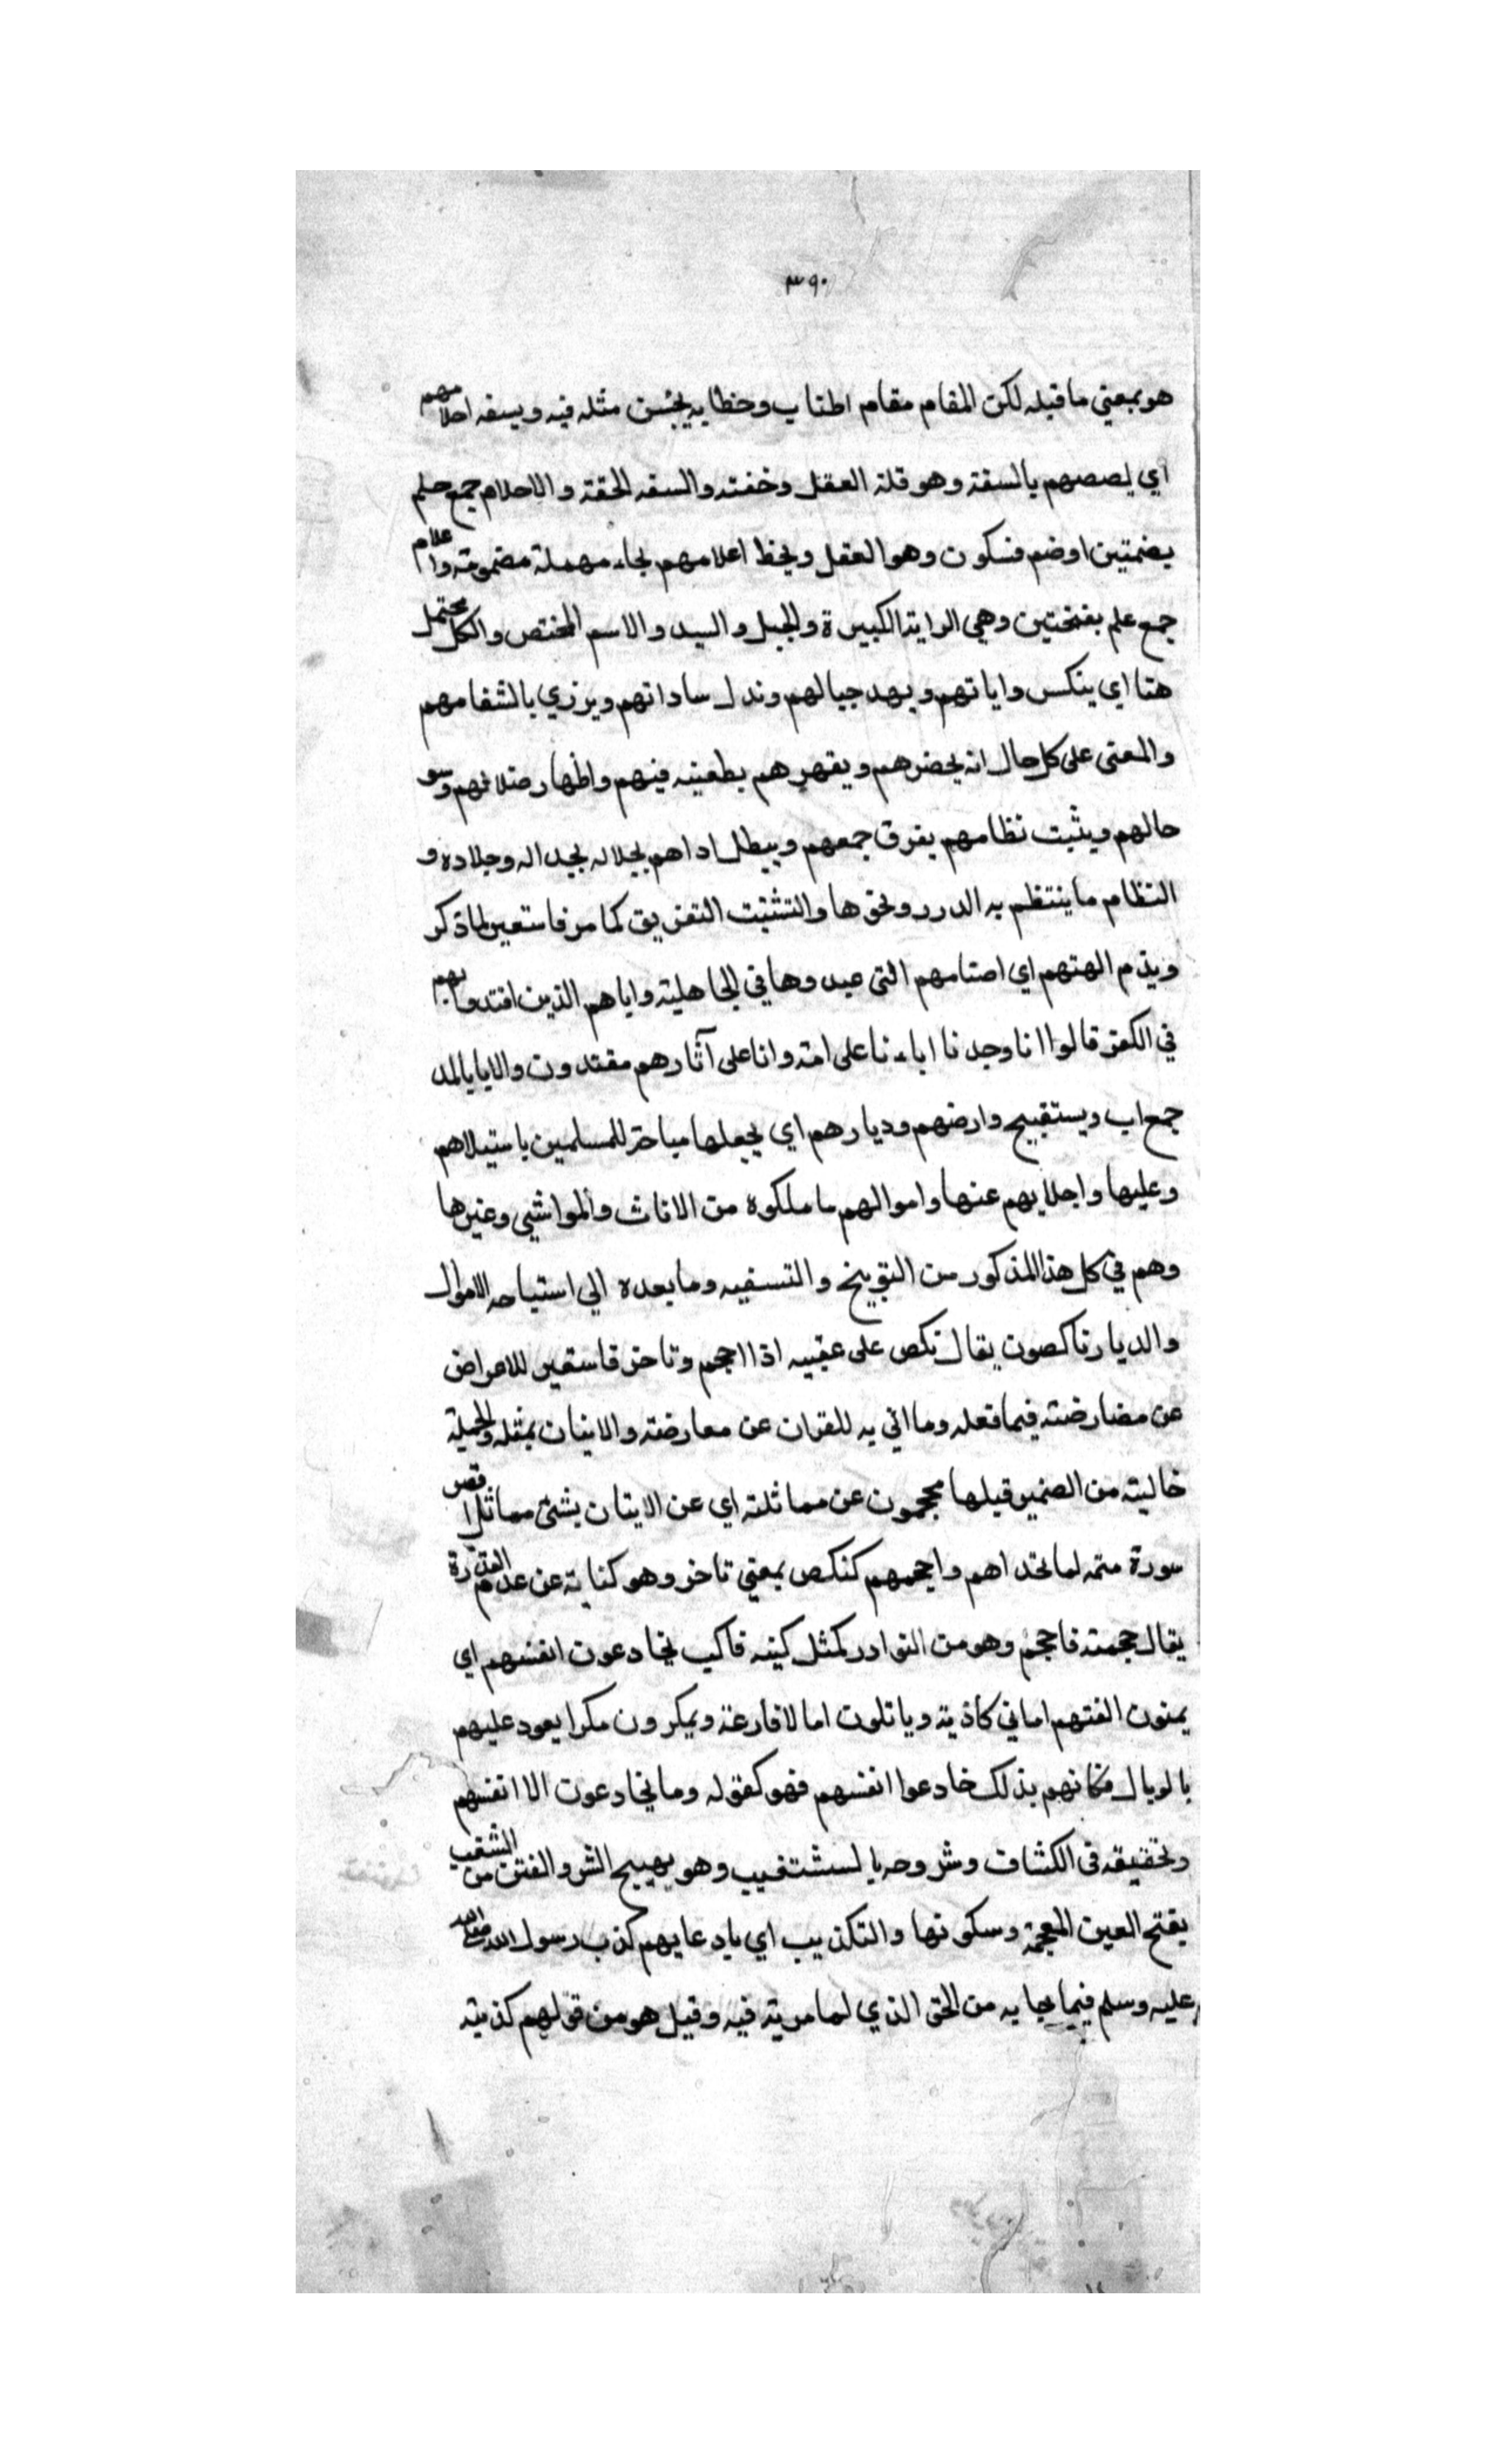 ٣٩٠
هو بمعني ما قبله لكن المقام مقام اطناب وخطابه يحسن مثله فيه ويسفه احلامهم
اي يصصهم بالسفة وهو قلة العقل وخفته والسفه الحقة والاحلام جمع حلم
بضمتين اوضم فسكون وهو العقل ويحط اعلامهم بحاء مهملة مضمومة واعلام
جمع علم بفتحتين وهي الراية الكبيرة والجبل والسيد والاسم المختص والكل محتمل
هنا اي ينكس واياتهم ويهد جبالهم وندل ساداتهم ويزري بالشفامهم
والمعنى على كل حال انه يحضرهم ويقهرهم بطعينه فيهم واظهار ضلالهم وسو
حالهم ويثبت نظامهم يفرق جمعهم ويبطل اداهم بجلاله بجداله وجلاده و
النظام ما ينتظم به الدرر ونحوها والتشتت التفريق كما مر فاستعير لما ذكر
ويذم الهتهم اي اصنامهم التي عبدوها في الجاهلية واياهم الذين اقتدوا بهم
في الكفر قالوا انا وجدنا اباءنا على امة وانا على آثارهم مقتدون والابا بالمد
جمع اب ويستقبيح وارضهم وديارهم اي يجعلها مباحة للمسلمين باستيلاهم
وعليها واجلايهم عنها واموالهم ما ملكوه من الاثاث والمواشي وغيرها
وهم في كل هذا المذكور من التوبيخ والتسفيه وما بعده الي استباحه الاموال
والديار ناكصون يقال نكص على عقبيه اذا احجم وتاخر فاستعير للاعراض
عن مضارضته فيما فعله وما اتي به للقران عن معارضته والاتيان بمثله والجملة
خالية من الضمير قيلها محجمون عن مماثلته اي عن الايتان بشئ مماثل اقصر
سورة منه لما تحداهم واحجمهم كنكص بمعني تاخر وهو كناية عن عدم القدرة
يقال حجمته فاحجم وهو من النوادر كمثل كبنه فاكب يخادعون انفسهم اي
يمنون انفسهم اماني كاذبة وياتلون اما لا فارغة ويمكرون مكرا يعود عليهم
بالوبال فكانهم بذلك خادعوا انفسهم فهو كقوله وما يخادعون الا انفسهم
وتحقيقه في الكشاف وشروحه بالستشغيب وهو يهييج الشر والفتن من الشغب
بفتح الغين المعجمة وسكونها والتكذيب اي بادعايهم كذب رسول الله صلى الله
عليه وسلم فيما جا به من الحق الذي لما مرية فيه وقيل هو من قولهم كذبته